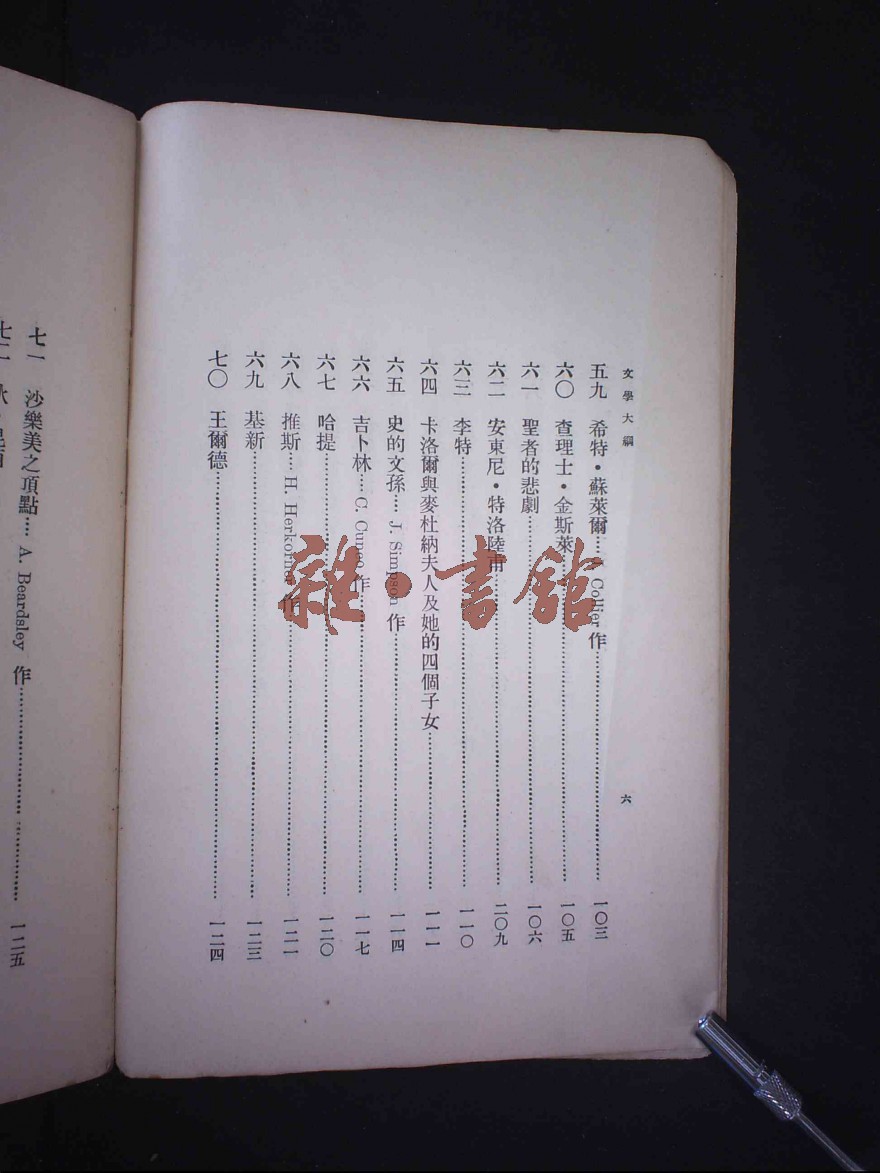 文學大綱
六
五九 希特·蘇萊爾…… Collier 作……一〇三
六〇 查理士·金斯萊……一〇五
六一 聖者的悲劇……一〇六
六二 安東尼·特洛陸甫……二〇九
六三 李特……一一〇
六四 卡洛爾與麥杜納夫人及她的四個子女……一一一
六五 史的文孫…… J. Simpson 作……一一四
六六 吉卜林…… C. 作……一一七
六七 哈提……一二〇
六八 推斯…… H. Herkomer 作……一二一
六九 基新……一二三
七〇 王爾德……一二四
七一 沙樂美之頂點…… A. Beardsley 作……一二五
七二
雜·書館